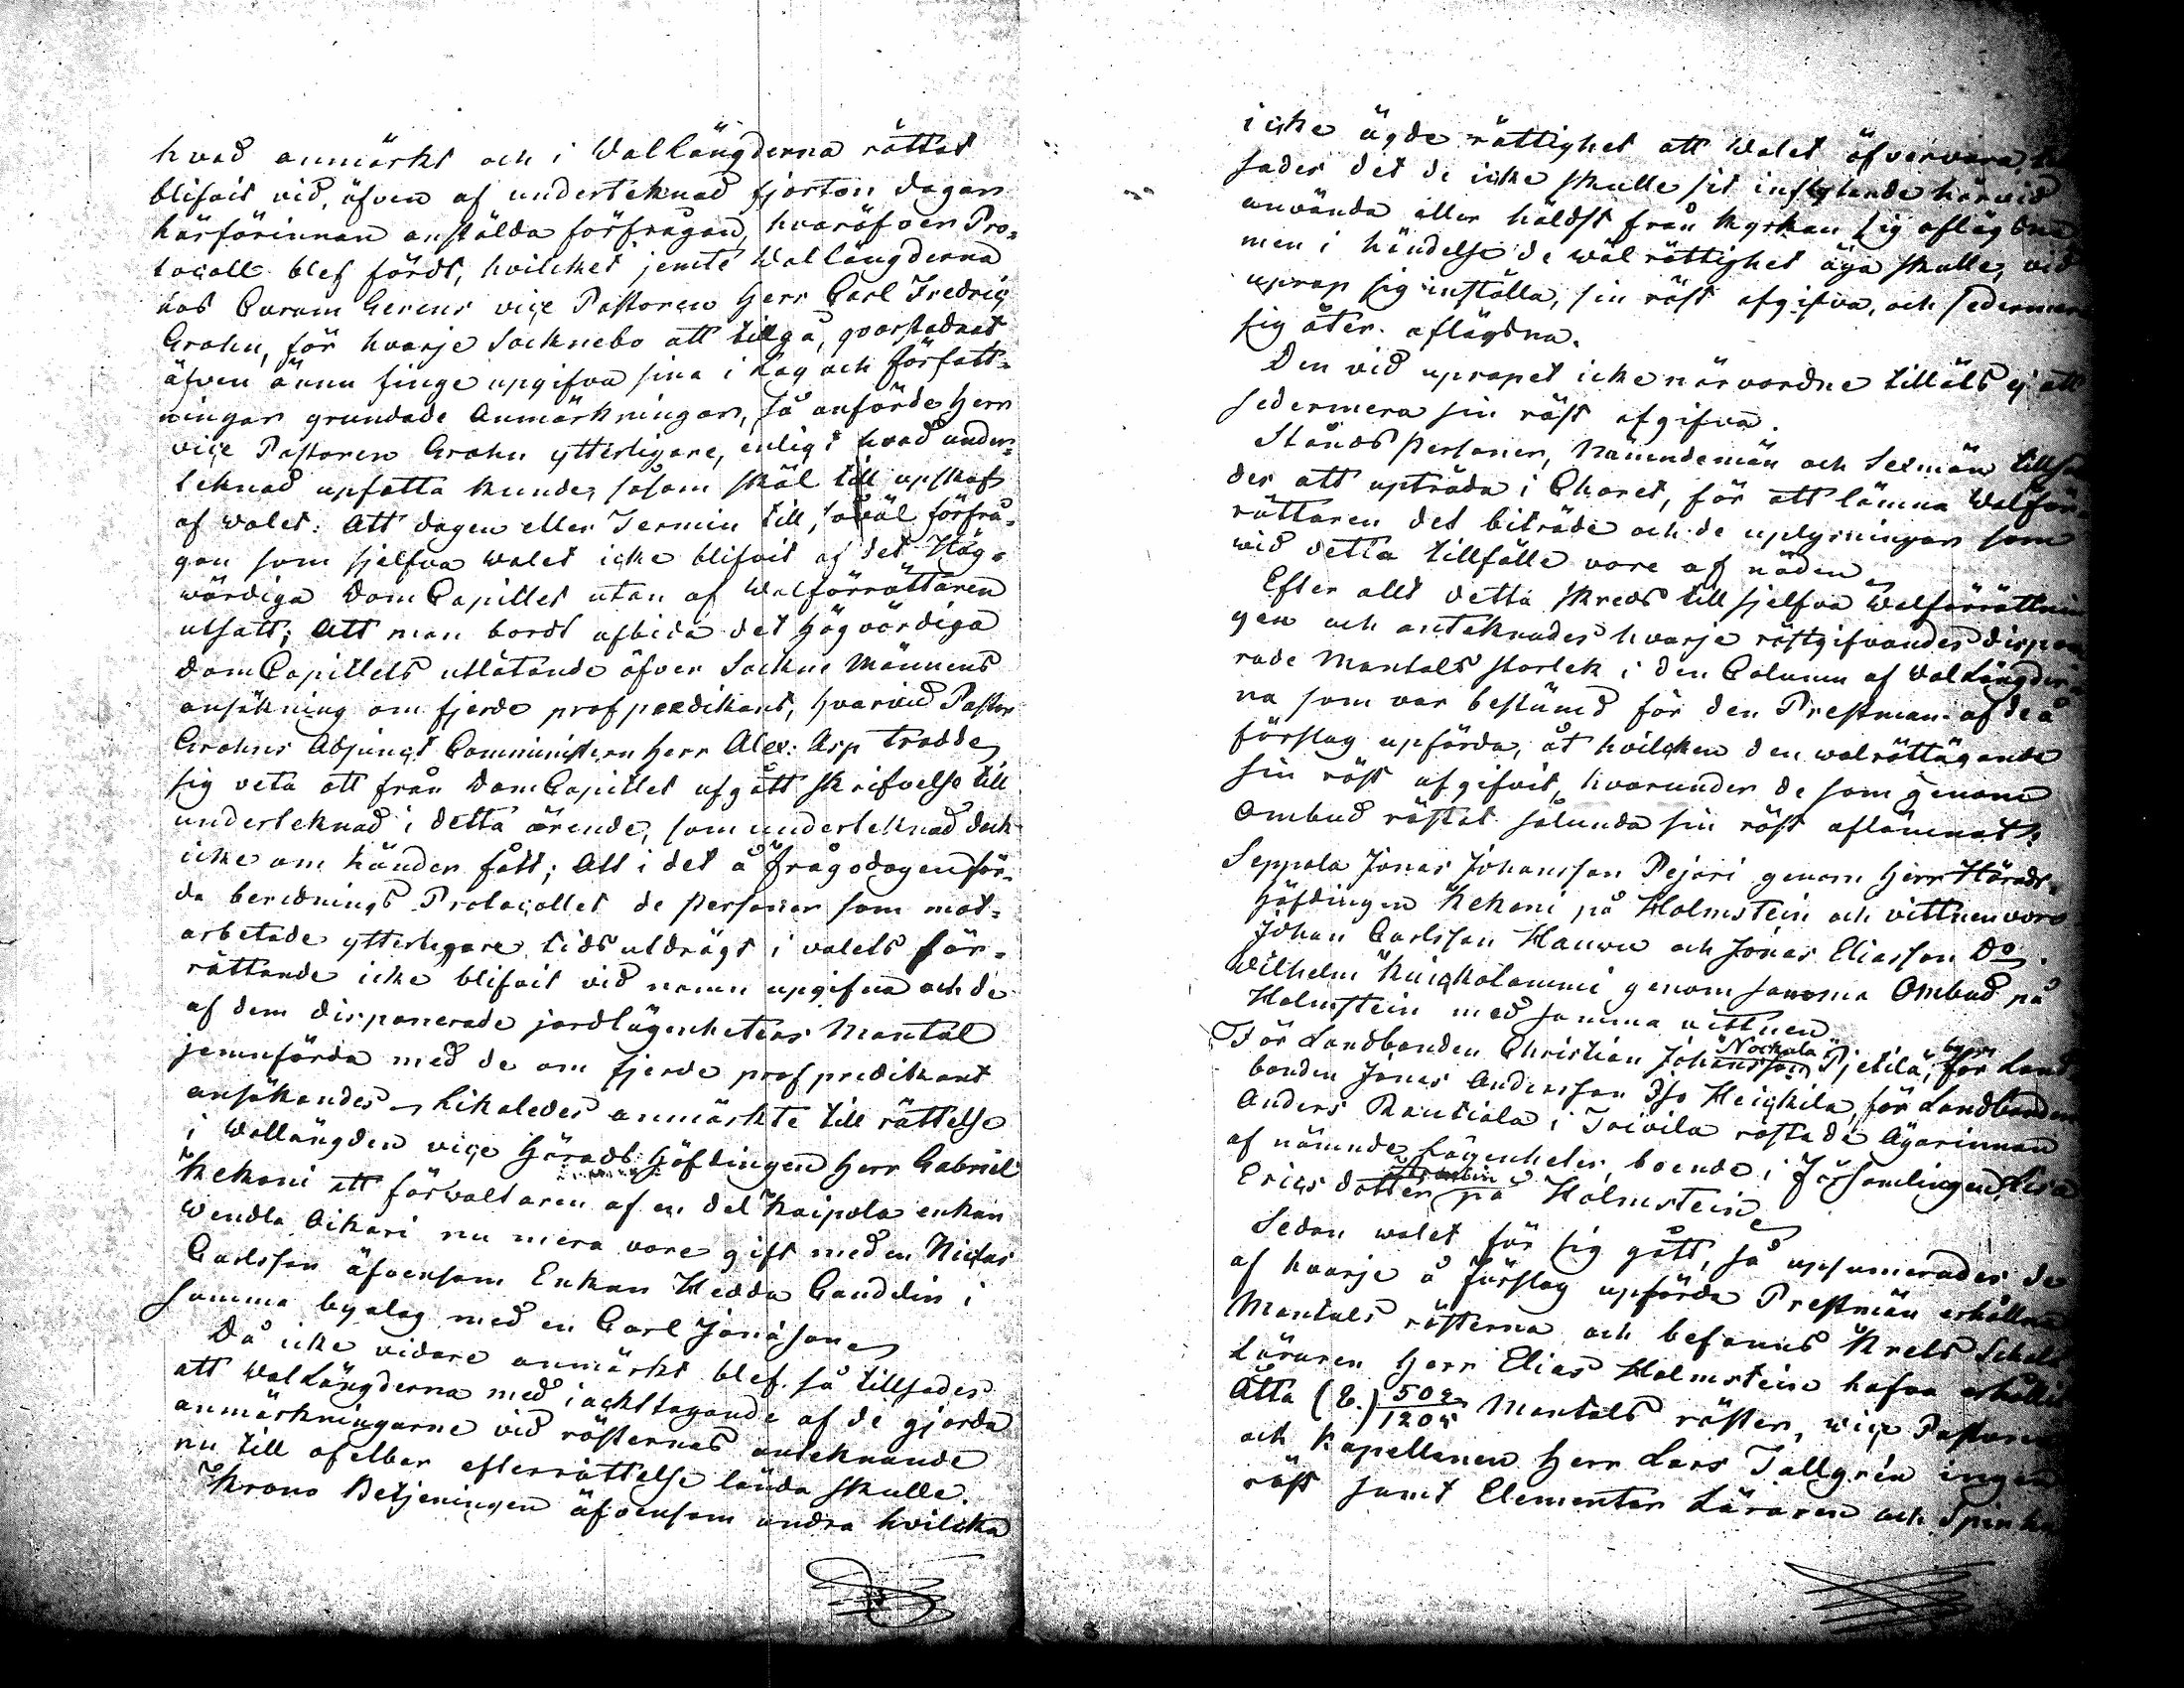 hvad anmärkt och i Wallängderna rättat
blifvit vid, äfven af undertecknad fjorton dagar
härförinnan anstälda förfrågan, hvaröfver Pro-
tocoll blef fördt, hvilket jemte Wallängderna
hos Curam Gerens vice Pastoren Herr Carl Fredric
Grahn, för hvarje Socknebo att tillgå, qvarstadnat
äfven ännu finge upgifva sina i Lag och Författ-
ningar grundade Anmärkningar, Så anförde Herr
vice Pastoren Grahn ytterligare, enligt hvad under-
teknad upfatta kunde, såsom skäl till upskof
af valet: Att dagen eller Termin till, såväl förfrå-
gan som sjelfva walet icke blifvit af det Hög-
wördiga Dom Capitlet utan af Walförrättaren
utsatt; Att man bordt afbida det Högvördiga
Dom Capitlets utlåtande öfver Sockne Männens
ansökning om fjerde profpredikant, hvarvid Pastor
Grahns Adjunct Comministern Herr Alex: Asp trodde
sig veta att från Dom Capitlet afgått skrifvelse till
underteknad i detta ärende, som underteknad dock
icke om händer fått; Att i det å Frågodagen för-
da berednings Protocollet de personer som mot-
arbetade ytterligare tidsutdrägt i valets för-
rättande icke blifvit vid namn upgifna och de
af dem disponerade jordlägenheters Mantal
jemnförda med de om fjerde profpredikant
ansökandes. Likaledes anmärkte till rättelse
i Wallängden vice Härads Höfdingen Herr Gabriel
Kekoni att förvaltaren af en del Kaipola enkan
Wendla Oikari nu mera vore gift med en Niclas
Carlsson äfvensom Enkan Hedda Gauddin i
samma byalag med en Carl Jonasson.
Då icke vidare anmärkt blef. så tillsades
att Wallängderna med iackttagande af de gjorda
anmärkningarne vid rösternas anteknande
nu till ofelbar efterrättelse lända skulle.
Krono Betjeningen äfvensom andra hvilcka
icke ägde rättighet att Walet öfvervara,
sades det de icke skulle sit inflytande härvid
använda eller häldst från kyrkan sig aflägsna
men i händelse de wäl rättighet äga skulle, vid
uprop sig inställa, sin röst afgifva, och sedermera
sig åter aflägsna.
Den vid upropet icke närvardne tilläts ej att
sedermera sin röst afgifva.
Stånds Personer, Nämndemän och Sexmän tillsa-
des att upträda i Choret, för att lämna Walför-
rättaren det biträde och de uplysningar som
wid detta tillfälle vore af nöden.
Efter allt detta skreds till sjelfva Walförrättnin-
gen och anteknades hvarje röstgifvandes dispone-
rade Mantals storlek i den Column af Wallängder-
na som var bestämd för den Prestman af de å
förslag upförda, åt hvilken den walrättägande
sin röst afgifvit, hvarunder de som genom
Ombud röstat sålunda sin röst aflämnat:
Seppola Jonas Johansson Pejari genom Herr Härads-
höfdingen Kekoni på Holmstein och vittnen voro
Johan Carlsson Hauvu och Jonas Eliasson Do.
Wilhelm genom samma Ombud på
Holmstein med samma vittnen.
För Landbonden Christian Johansson Nockala Pjetilä, för Land
bonden Jonas Andersson Iso Heickilä, för Landbonden
Anders Rautiala i Toivila röstade Ägarinnan
af nämnde Lägenheter, boende i Församlingen, Lisa
Ericsdotter på Holmstein.
Sedan walet för sig gått, så upsumerades de
af hvarje å förslag upförda Prestmän erhållna
Mantals rösterna och befanns Krets Schole
Läraren Herr Elias Holmstein hafva erhållit
Åtta (8.) 509/1205 Mantals röster, vice Pastoren
och Kapellanen Herr Lars Tallgrén ingen
röst samt Elementar Läraren och